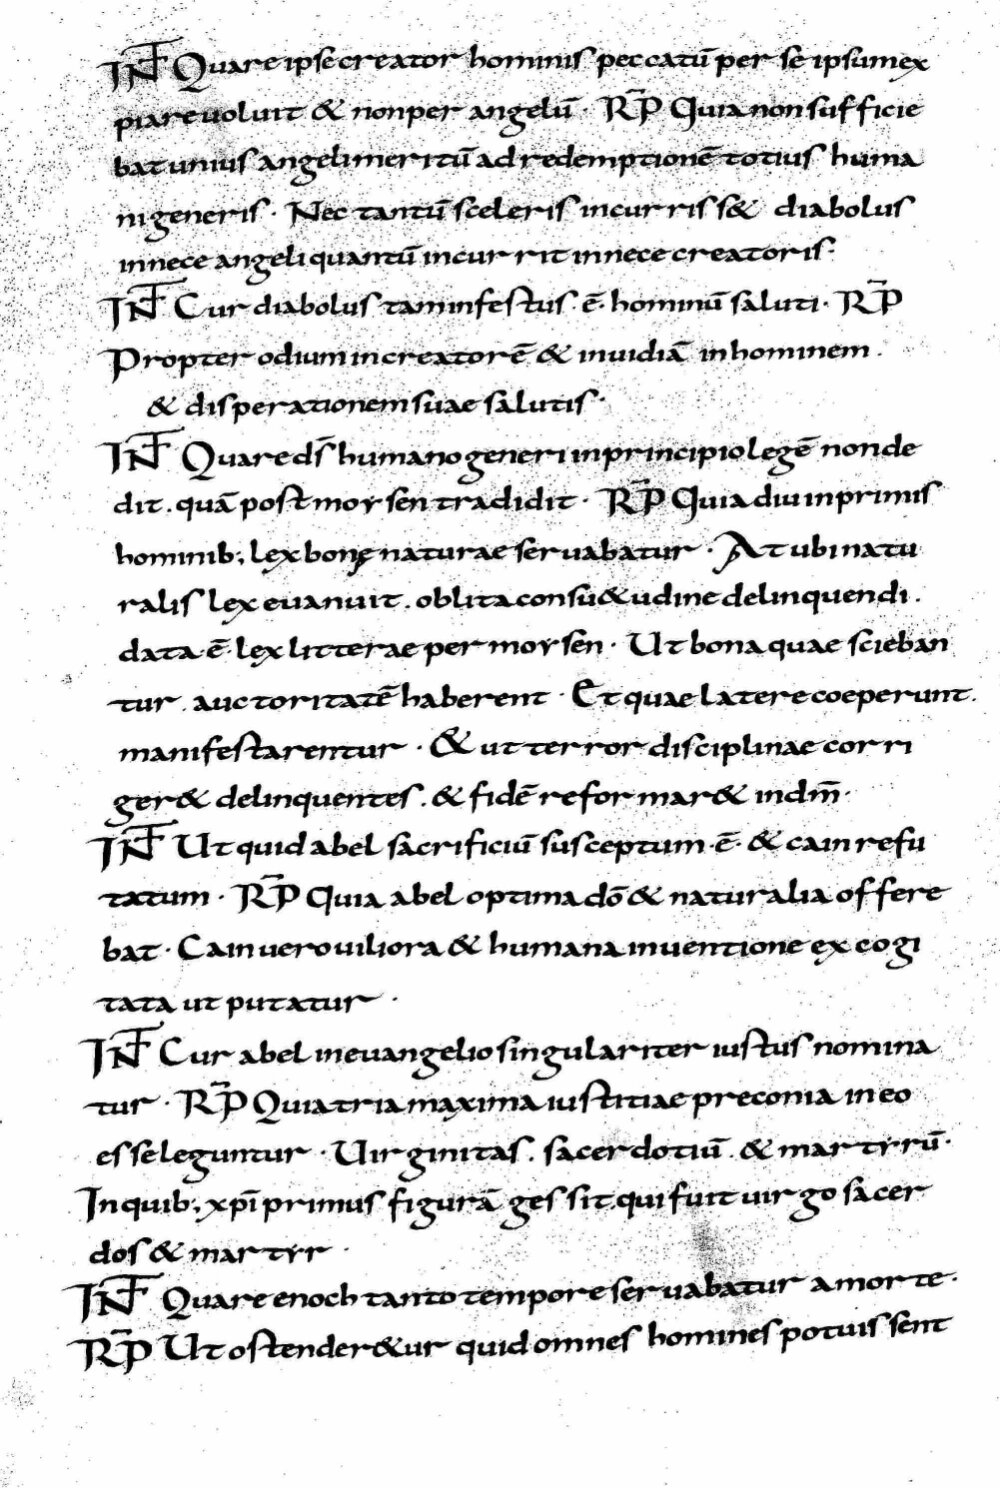 INT Quare ipse creator hominis peccatū per se ipsum ex
piare uoluit & non per angelū · R̄P Quia non suffcie
bat unius angeli meritū ad redemptionē totius huma
ni generis · Nec tantū sceleris incurriss& diabolus
in nece angeli quantū incurrit in nece creatoris ·
INT Cur diabolus tam infestus · ē · hominū saluti · R̄P
Propter odium in creatorē & inuidiā in hominem .
& disperationem suae salutis ·
INT Quare d̄s humano generi in principio legē non de
dit . quā post moysen tradidit · R̄P Quia diu in primis
hominib; lex bonę naturae seruabatur · At ubi natu
ralis lex euanuit . oblita consu&udine delinquendi .
data · ē · lex litterae per moysen · Ut bona quae scieban
tur . auctoritatē haberent · Et quae latere coeperunt .
manifestarentur · & ut terror disciplinae corri
ger& delinquentes . & fidē reformar& in dm̄ ·
INT Ut quid abel sacrificiū susceptum · ē · & cain refu
tatum · R̄P Quia abel optima dō & naturalia offere
bat · Cain uero uiliora & humana inuentione excogi
tata ut putatur ·
INT Cur abel in euangelio singulariter iustus nomina
tur · R̄P Quia tria maxima iustitiae preconia in eo
esse leguntur · Uirginitas . sacerdotiū . & martyrū ·
In quib; xp̄i primus figurā gessit . qui fuit uirgo sacer
dos & martyr ·
INT Quare enoch tanto tempore seruabatur a morte ·
R̄P Ut ostender&ur quid omnes homines potuissent